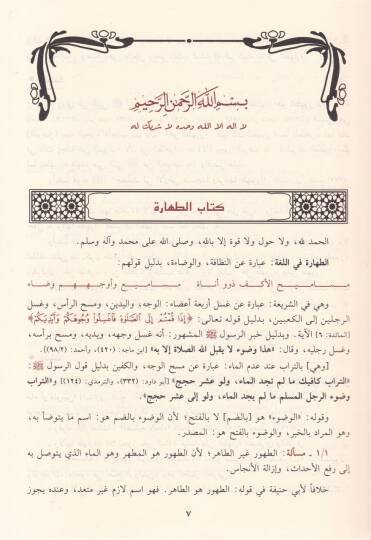 بسم الله الرحمن الرحيم
لا اله الا الله وحده لا شريك له
كتاب الطهارة
الحمد لله، ولا حول ولا قوة إلا بالله، وصلى الله على محمد وآله وسلم.
الطهارة في اللغة: عبارة عن النظافة، والوضاءة، بدليل قولهم:
مساميح الأكف ذوو أناة مساميح وأوجههم وضاء
وهي في الشريعة: عبارة عن غسل أربعة أعضاء: الوجه، واليدين، ومسح الرأس، وغسل
الرجلين إلى الكعبين، بدليل قوله تعالى: ﴿إِذَا قُمْتُمْ إِلَى الصَّلَوٰةِ فَاغْسِلُوا وُجُوهَكُمْ وَأَيْدِيَكُمْ﴾
[المائدة: ٦] الآية. وبدليل خبر الرسول ﷺ المشهور: أنه غسل وجهه، ويديه، ومسح برأسه،
وغسل رجليه، وقال: «هذا وضوء لا يقبل الله الصلاة إلا به» [ابن ماجه: (٤٢٠)، وأحمد: (٩٨/٢)].
[وهي] بالتراب عند عدم الماء: عبارة عن مسح الوجه، والكفين بدليل قول الرسول ﷺ:
«التراب كافيك ما لم تجد الماء، ولو عشر حجج» [أبو داود: (٣٣٢)، والترمذي: (١٢٤)] و«التراب
وضوء الرجل المسلم ما لم يجد الماء، ولو إلى عشر حجج».
وقوله: «الوضوء» هو [بالضم] لا بالفتح؛ لأن الوضوء بالضم هو: اسم ما يتوضأ به،
وهو المراد بالخبر، والوضوء بالفتح هو: المصدر.
١/١ ـ مسألة: الطهور غير الطاهر؛ لأن الطهور هو المطهر وهو الماء الذي يتوصل به
إلى رفع الأحداث، وإزالة الأنجاس.
خلافاً لأبي حنيفة في قوله: الطهور هو الطاهر. فهو اسم لازم غير متعد، وعنده يجوز
٧